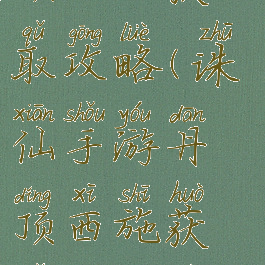 qǔ gōng lüè zhū
取攻略(诛
xiān shǒu yóu dān
仙手游丹
dǐng xī shī huò
顶西施获